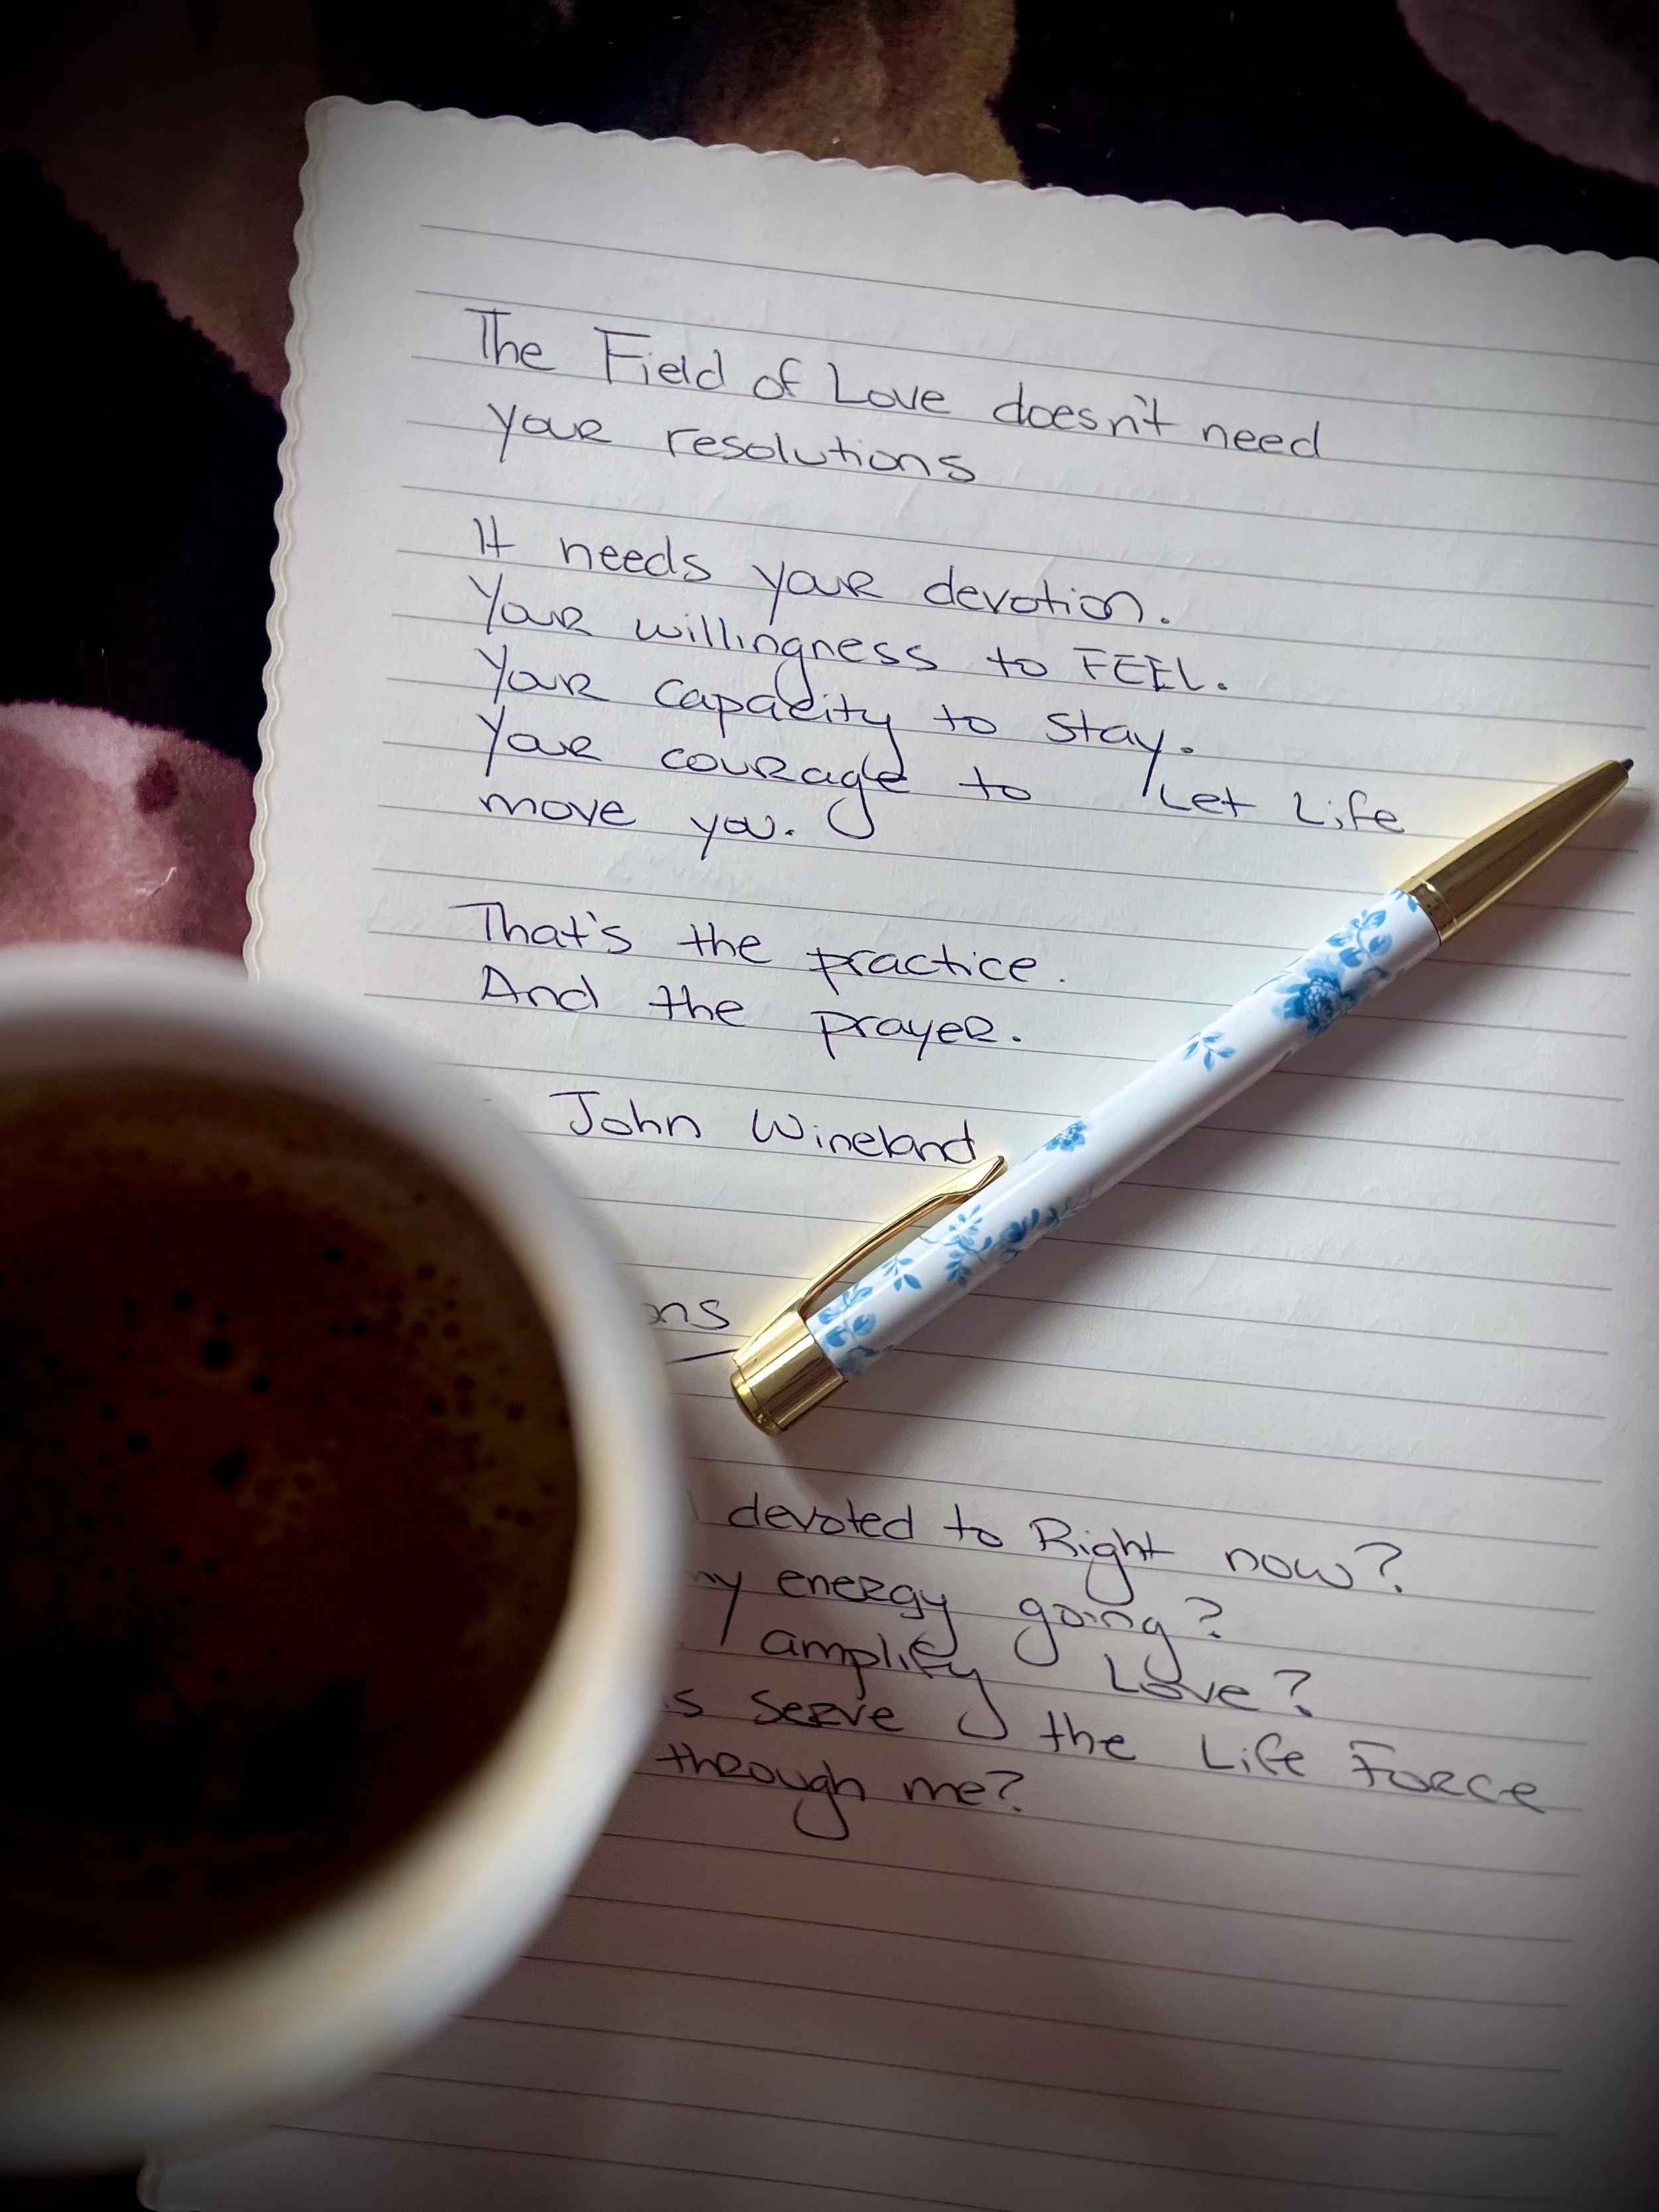 The Field of Love doesn't need
your resolutions
It needs your devotion.
Your willingness to FEEL.
Your capacity to stay.
Your courage to Let Life
move you.
That's the practice.
And the prayer.
John Wineland
ns
devoted to Right now?
my energy going?
amplify Love?
s serve the Life Force
through me?